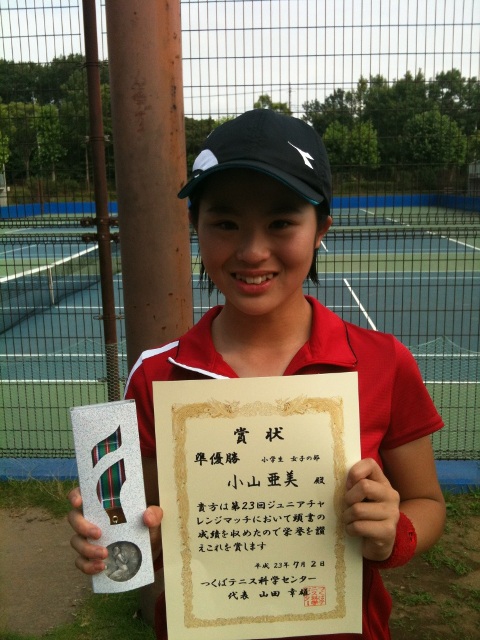 賞状
準優勝 小学生 女子の部
小山亜美 殿
貴方は第23回ジュニアチャ
レンジマッチにおいて頭書の
成績を収めたので栄誉を讃
えこれを賞します
平成 23年 7月 2
つくばテニス科学センター
代表 山田 幸雄